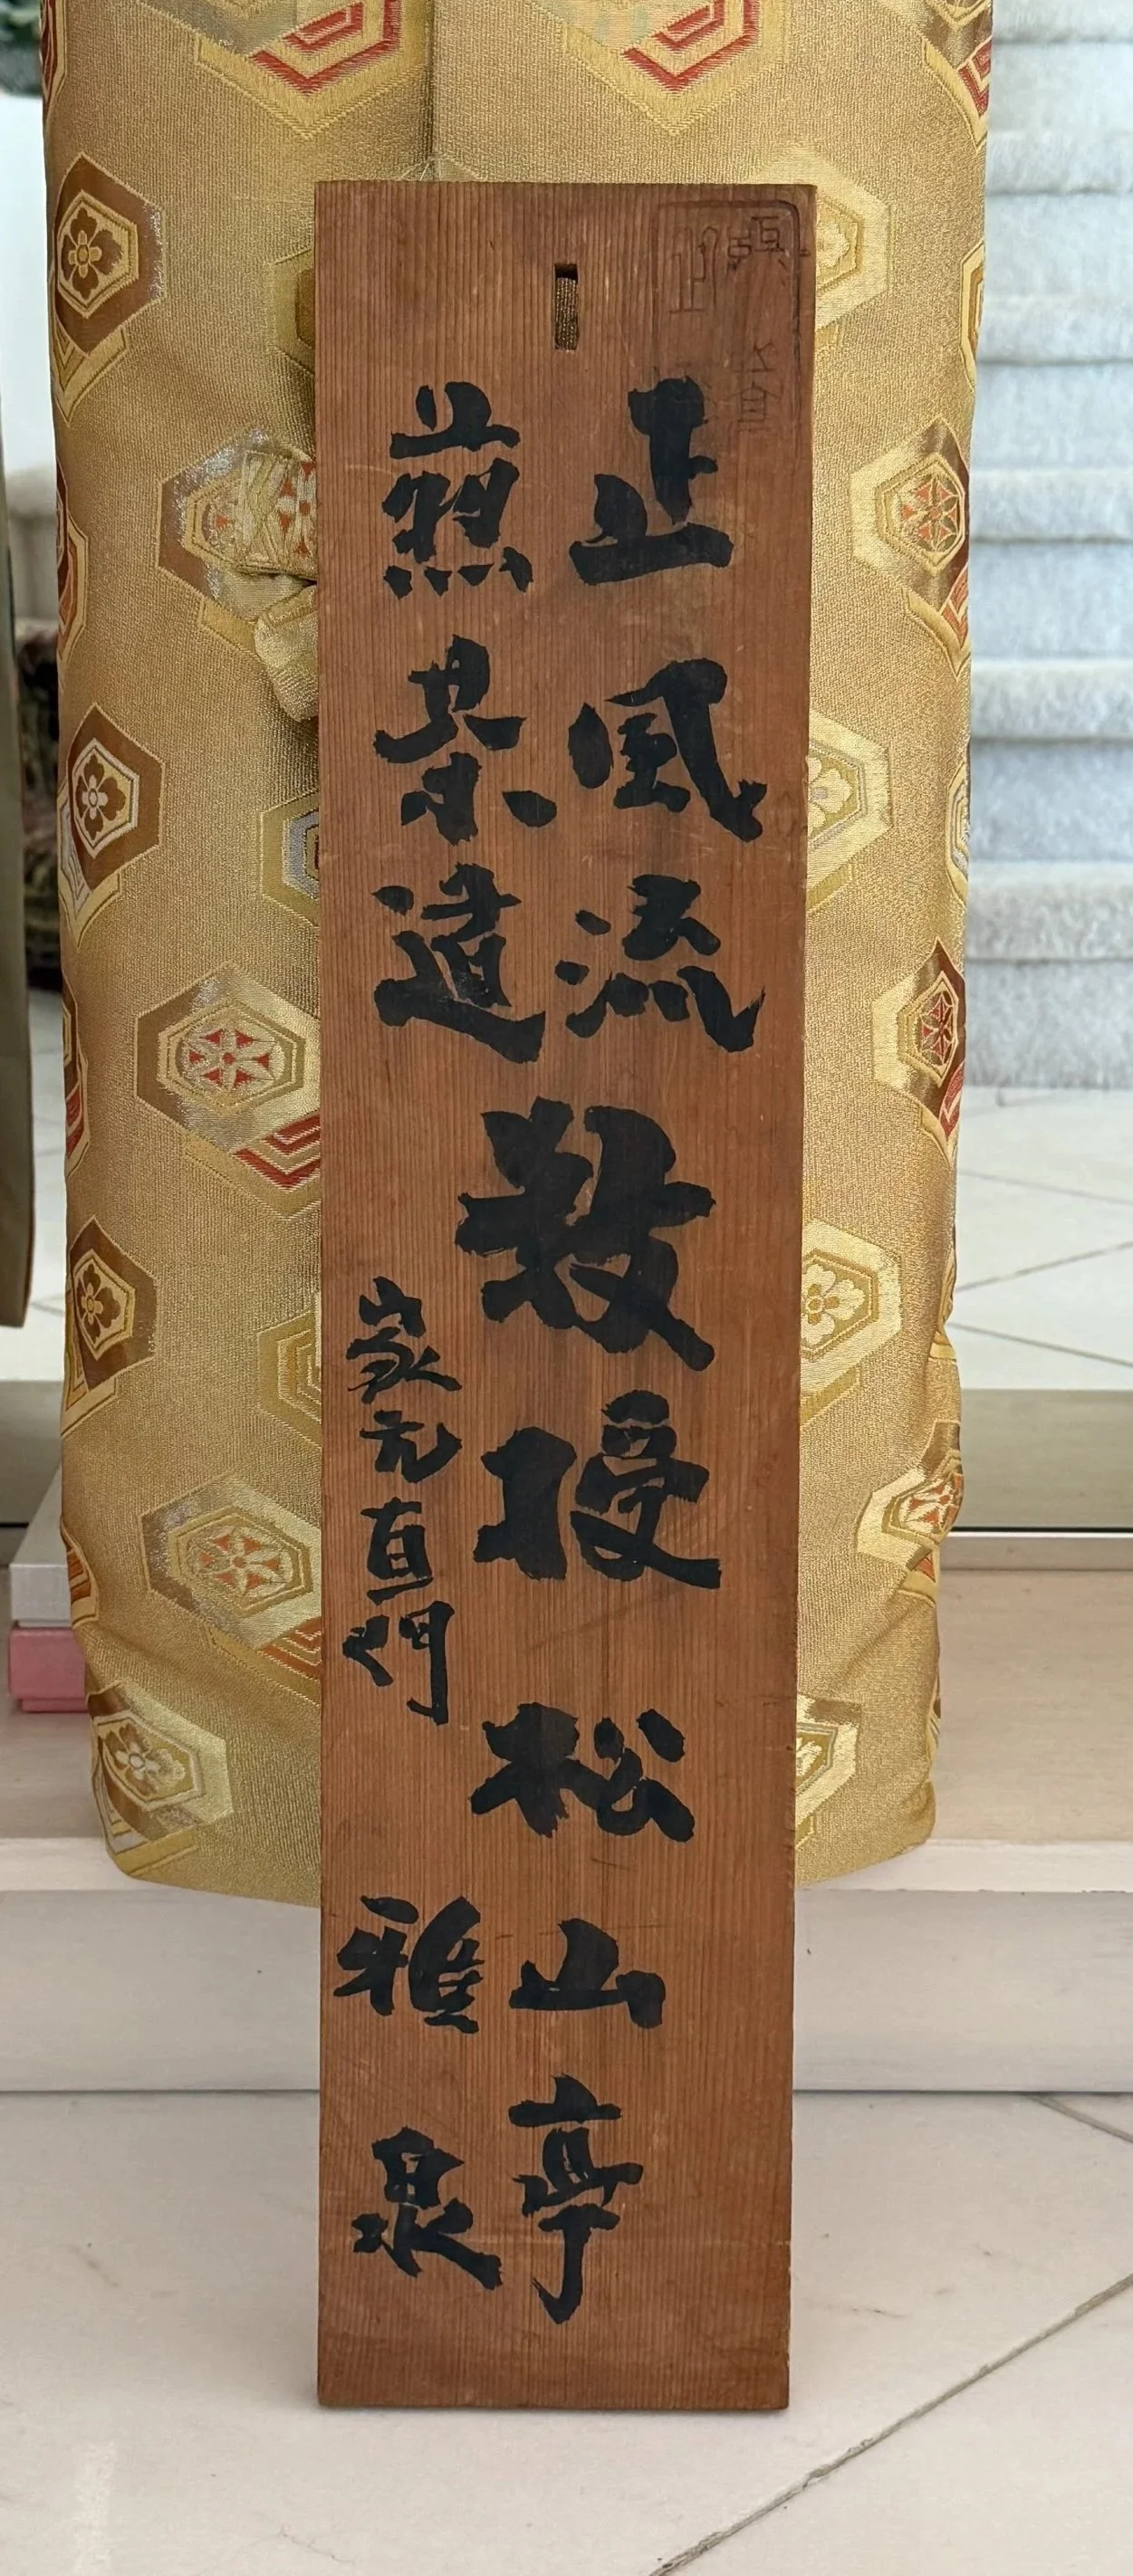 正風流教授松山亭
煎茶道家元直門雅泉